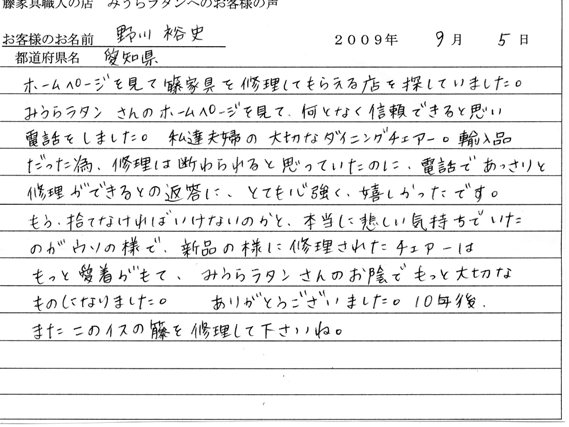 藤家具職人の店 みうらラタンへのお客様の声
お客様のお名前 野川 裕史 2009年 9月 5日
都道府県名 愛知県
ホームページを見て籐家具を修理してもらえる店を探していました。
みうらラタン さんのホームページを見て、何となく信頼できると思い
電話をしました。 私達夫婦の 大切なダイニングチェアー。輸入品
だった為、修理は断わられると思っていたのに、電話であっさりと
修理ができるとの返答に、とても心強く、嬉しかったです。
もう、捨てなければいけないのかと、本当に悲しい気持ちでいた
のがウソの様で、新品の様に修理されたチェアーは
もっと愛着がもて、 みうらラタンさんのお陰でもっと大切な
ものになりました。 ありがとうございました。10年後、
またこのイスの籐を修理して下さいね。